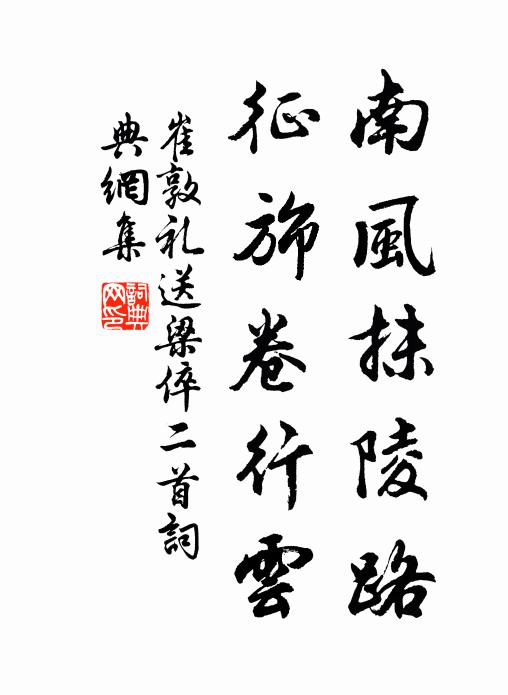 南風秣陵路
征旆卷行雲
崔敦礼送梁倅二首詞
典網集
詞典
网印